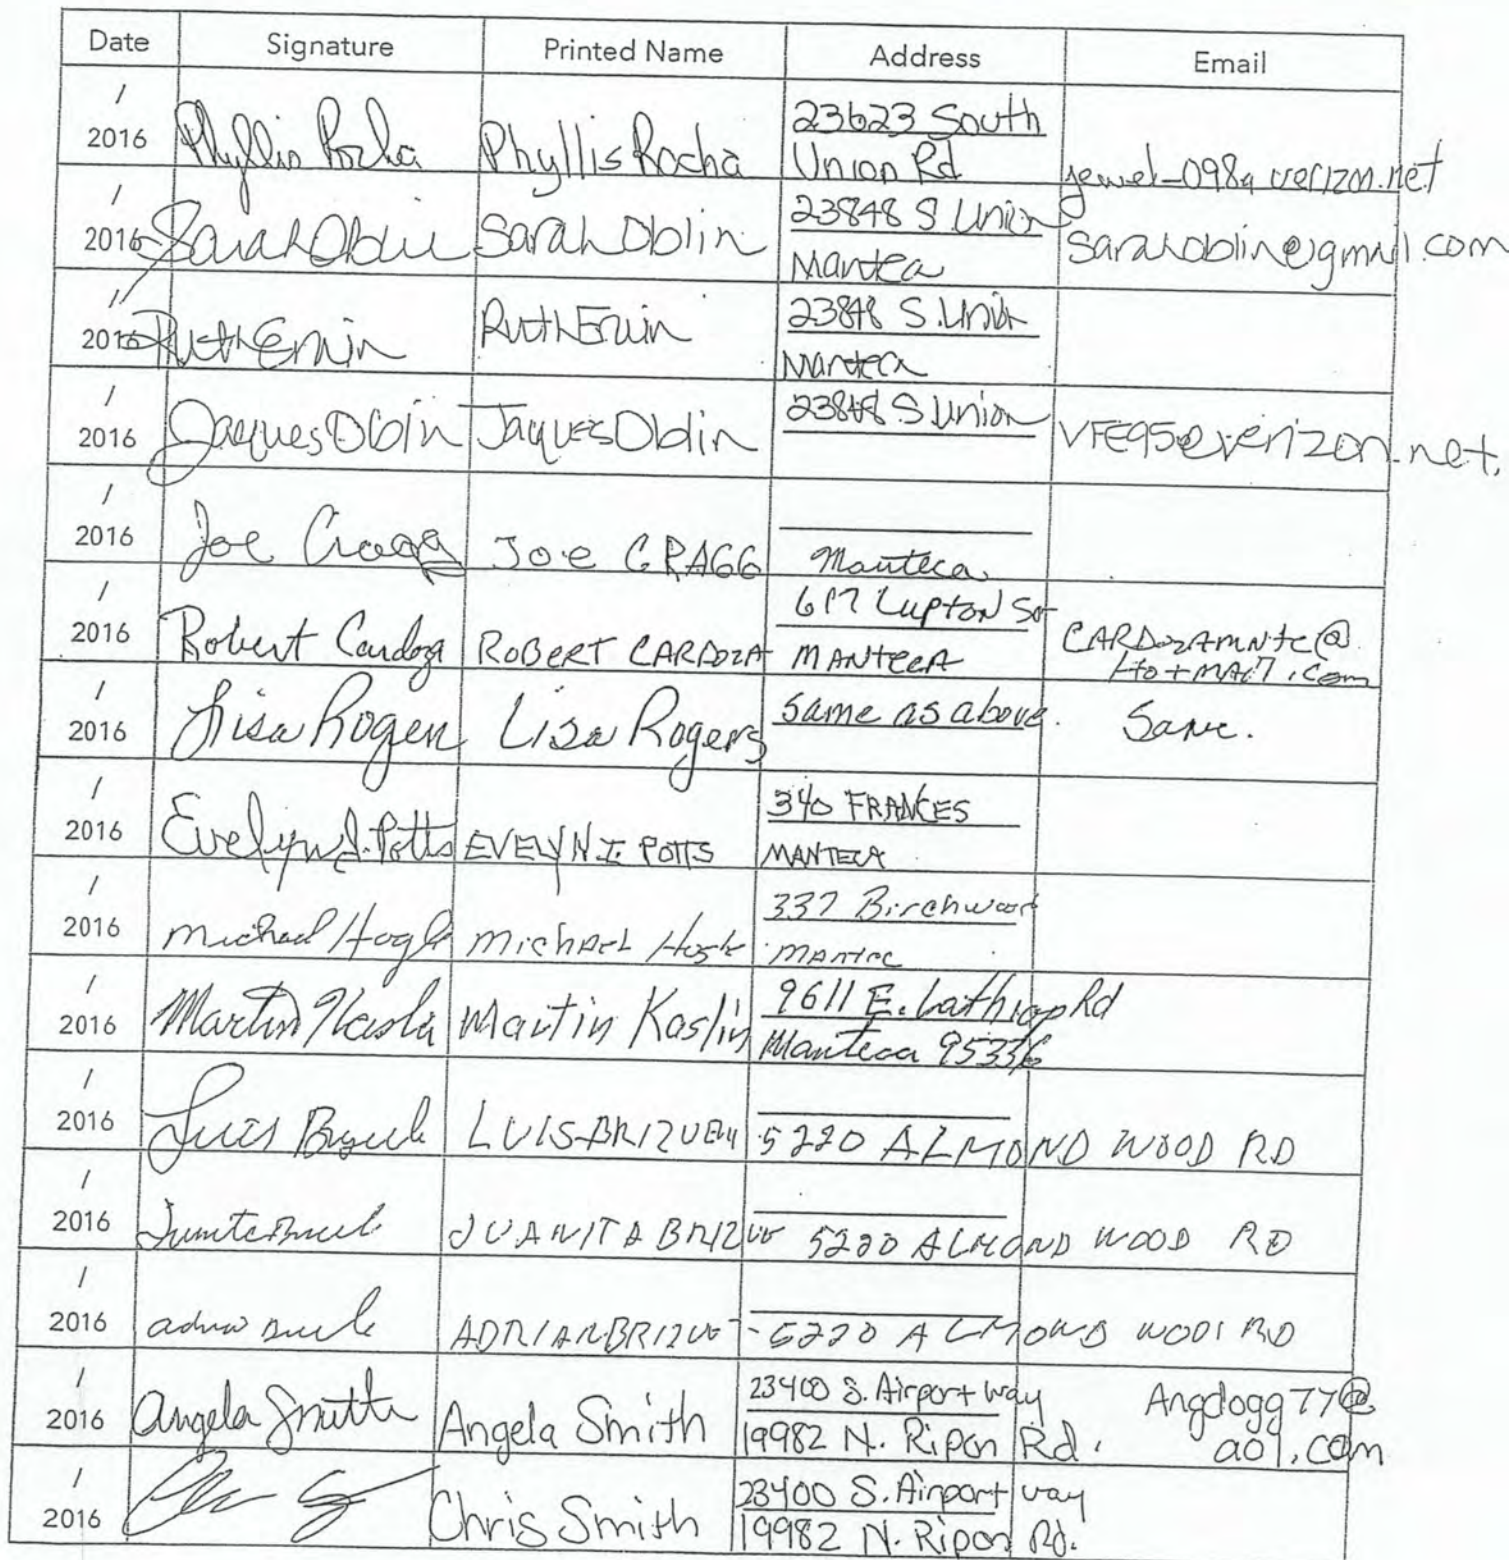 Date Signature Printed Name Address Email
/
2016 Phyllis Rocha Phyllis Rocha 23623 South
Union Rd jewel-098@verizon.net
/
2016 Sarah Oblin Sarah Oblin 23848 S Union
Manteca sarahoblin@gmail.com
/
2016 Ruth Erwin Ruth Erwin 23848 S. Union
Manteca
/
2016 Jaques Oblin Jaques Oblin 23848 S. Union VFE95@verizon.net.
/
2016 Joe Cragg Joe CRAGG Manteca
/
2016 Robert Cardoza ROBERT CARDOZA 617 Lupton
MANTECA CARDOZAMNTC@
HotMAil.com
/
2016 Lisa Rogers Lisa Rogers same as above. Same.
/
2016 Evelyn I. Potts EVELYN I. POTTS 340 FRANCES
MANTECA
/
2016 Michael Hogle Michael Hogle 337 Birchwood
/
2016 Martin Kaslin 9611 E. Lathrop Rd
Manteca 95336
/
2016 Luis LUIS BRIZUELA 5220 ALMOND WOOD RD
/
2016 JUANITA BRIZUE 5220 ALMOND WOOD RD
/
2016 ADRIAN BRIZUE 5220 ALMOND WOOD RD
/
2016 Angela Smith Angela Smith 23400 S. Airport way
19982 N. Ripon Rd. Angdogg77@
aol.com
/
2016 Chris Smith 23400 S. Airport way
19982 N. Ripon Rd.